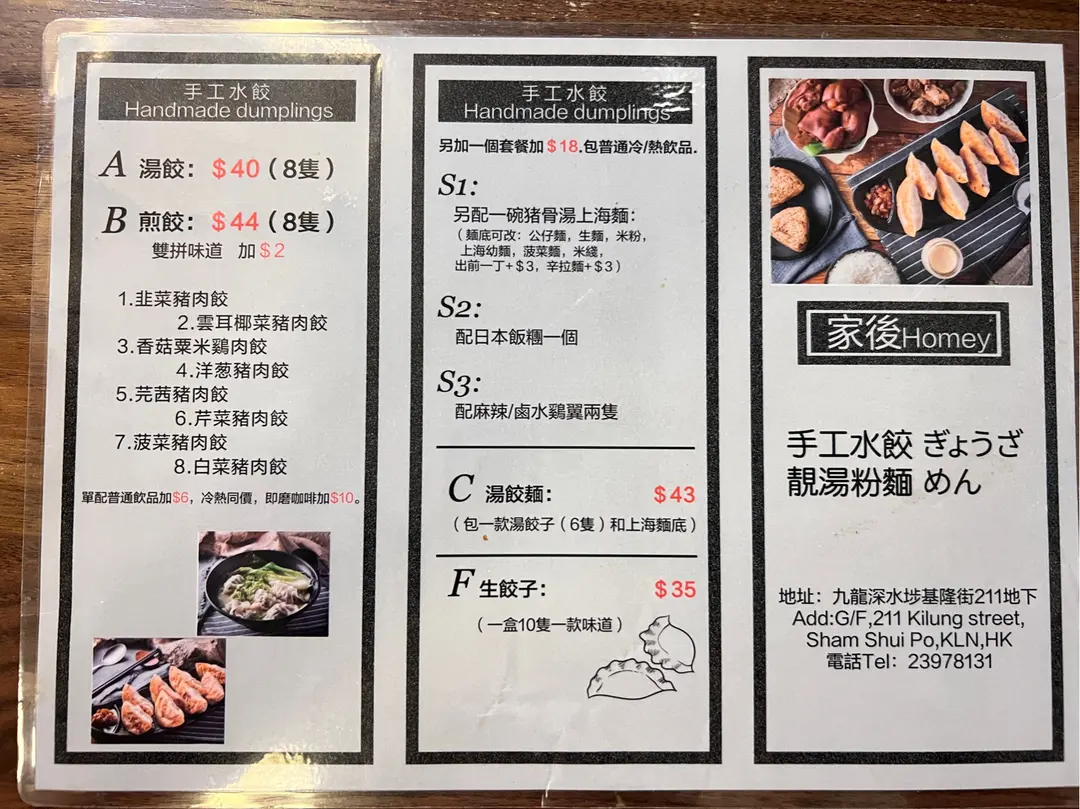 手工水餃
Handmade dumplings
A 湯餃：$40（8隻）
B 煎餃：$44（8隻）
雙拼味道 加$2
1.韭菜豬肉餃
2.雲耳椰菜豬肉餃
3.香菇粟米鷄肉餃
4.洋葱豬肉餃
5.芫茜豬肉餃
6.芹菜豬肉餃
7.菠菜豬肉餃
8.白菜豬肉餃
單配普通飲品加$6，冷熱同價，即磨咖啡加$10。
手工水餃
Handmade dumplings
另加一個套餐加$18.包普通冷/熱飲品.
S1:
另配一碗猪骨湯上海麵：
（麵底可改：公仔麵，生麵，米粉，
上海幼麵，菠菜麵，米綫，
出前一丁+$3，辛拉麵+$3）
S2:
配日本飯糰一個
S3:
配麻辣/鹵水鷄翼兩隻
C 湯餃麵： $43
（包一款湯餃子（6隻）和上海麵底）
F 生餃子： $35
（一盒10隻一款味道）
家後Homey
手工水餃 ぎょうざ
靚湯粉麵 めん
地址：九龍深水埗基隆街211地下
Add:G/F,211 Kilung street,
Sham Shui Po,KLN,HK
電話Tel：23978131